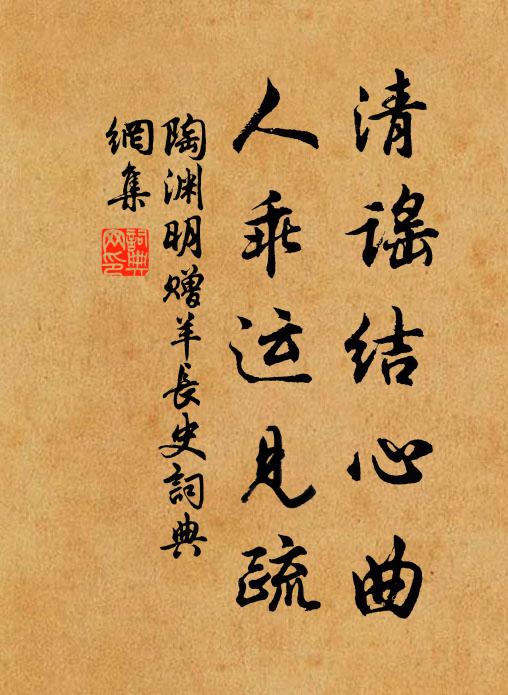 清谣结心曲
人乖运见疏
陶渊明赠羊长史詞典
網集
詞典
网印